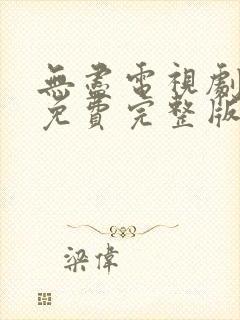 無盡電視劇
免費完整版
梁偉